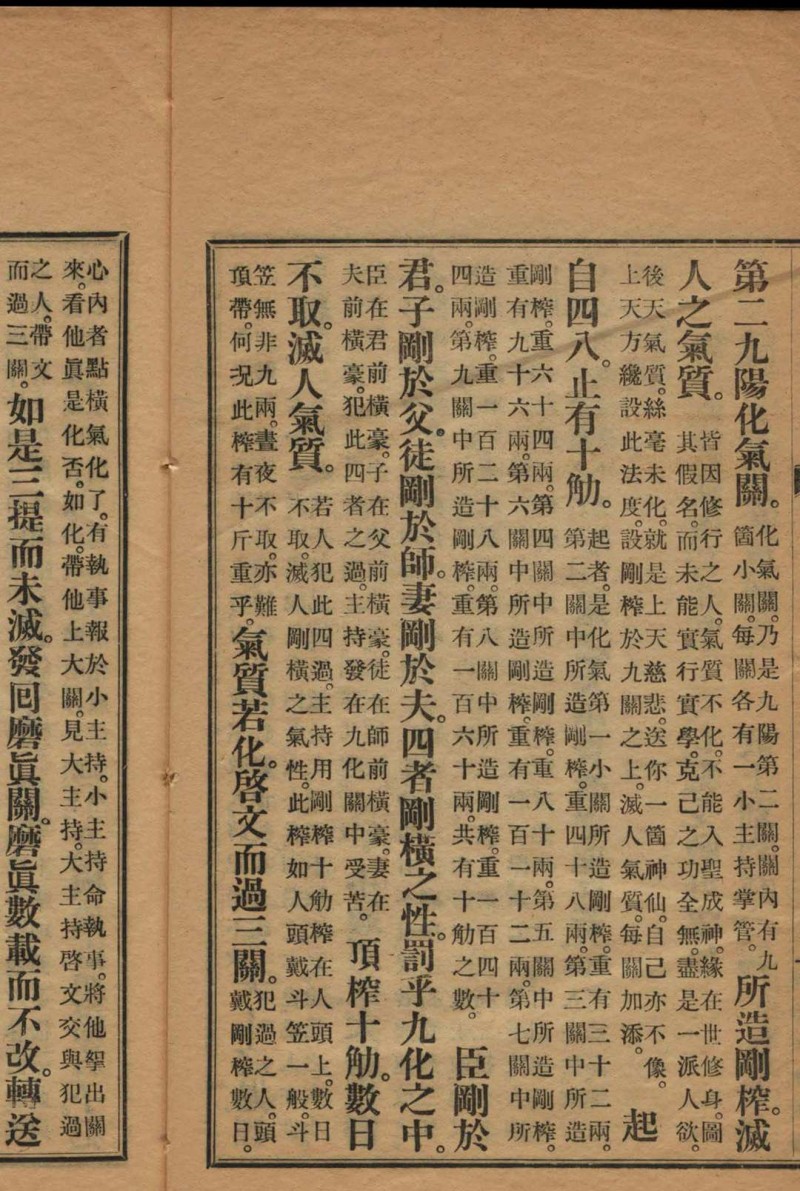 第二九陽化氣關。化氣關。乃是九陽第二關。關內有九
箇小關。每關各有一小主持掌管。所造剛榨。滅
人之氣質。皆因修行之人。氣質不化。不能入聖成神。緣在世修身。圖
其假名。而未能實行實學。克己之功全無。盡是一派人欲。
後天氣質。絲毫未化。就是上天慈悲。送你一箇神仙。自己亦不像。
上天方纔設此法度。設剛榨於九關之上。滅人氣質。每關加添。起
自四八。止有十觔。起者。是化氣第一小關所造剛榨。重有三十二兩。
第二關中所造剛榨。重四十八兩。第三關中所造
剛榨。重六十四兩。第四關中所造剛榨重八十兩。第五關中所造剛榨。
重有九十六兩。第六關中所造剛榨。重有一百一十二兩。第七關中所
造剛榨。重一百二十八兩。第八關中所造剛榨。重一百四十
四兩。第九關中所造剛榨。重有一百六十兩。共有十觔之數。臣剛於
君。子剛於父。徒剛於師。妻剛於夫。四者剛橫之性。罰乎九化之中。
臣在君前橫豪。子在父前橫豪。徒在師前橫豪。妻在
夫前橫豪。犯此四者之過。主持發在九化關中受苦。頂榨十觔。數日
不取。滅人氣質。若人犯此四過。主持用剛榨十觔榨在人頭上。數日
不取。滅人剛橫之氣性。此榨如人頭戴斗笠一般。斗
笠無非九兩。晝夜不取。亦難
頂帶。何况此榨有十斤重乎。氣質若化。啓文而過三關。犯過之人。頭
戴剛榨數日。
心內者點橫氣化了。有執事報於小主持。小主持命執事。將他挐出關
來。看他眞是化否。如化。帶他上大關。見大主持。大主持啓文交與犯過
之人。帶文
而過三關。如是三提而未滅。發回磨眞關。磨眞數載而不改。轉送